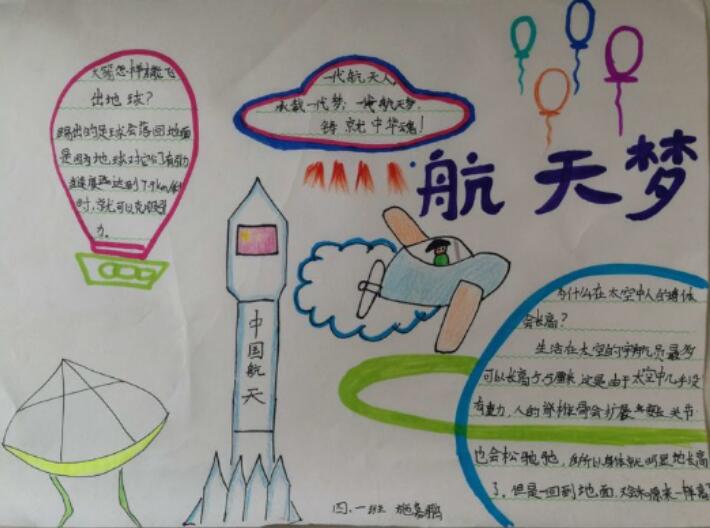 航天梦
火箭怎样才能飞
出地球?
踢出的足球会落回地面
是因为地球对它有引力
速度达到7.9km/s
时,就可以克服引
力。
一代航天人,
承载一代梦;一代航天梦,
铸就中华魂!
中国航天
为什么在太空中人的身体
会长高?
生活在太空的宇航员最多
可以长高5.5厘米 这是由于太空中几乎没
有重力,人的脊椎骨会扩展 关节
也会松弛 所以身体就明显地长高
了,但是一回到地面 原来一样高
四.一班 施嘉鹏